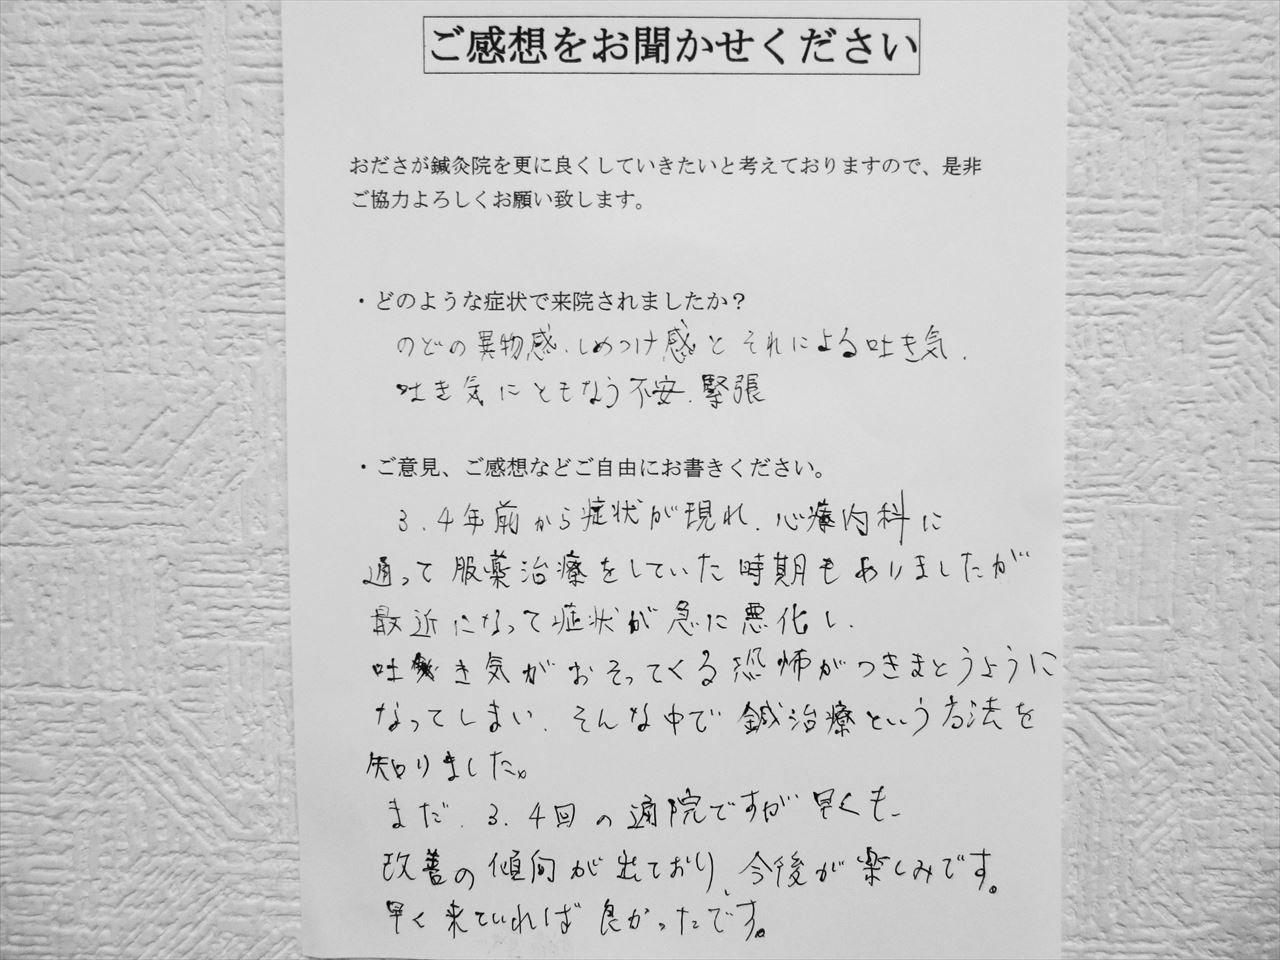 ご感想をお聞かせください
おださが鍼灸院を更に良くしていきたいと考えておりますので、是非
ご協力よろしくお願い致します。
・どのような症状で来院されましたか?
のどの異物感、しめつけ感とそれによる吐き気、
吐き気にともなう不安、緊張
・ご意見、ご感想などご自由にお書きください。
3、4年前から症状が現れ、心療内科に
通って服薬治療をしていた時期もありましたが
最近になって症状が急に悪化し、
吐き気がおそってくる恐怖がつきまとうように
なってしまい、そんな中で鍼治療という方法を
知りました。
まだ、3、4回の通院ですが早くも、
改善の傾向が出ており、今後が楽しみです。
早く来ていれば良かったです。